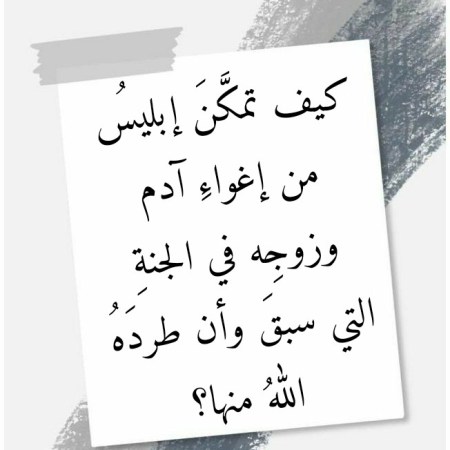 كيف تمكَّنَ إبليسُ
من إغواءِ آدم
وزوجِه في الجنةِ
التي سبقَ وأن طردَهُ
اللهُ منها؟